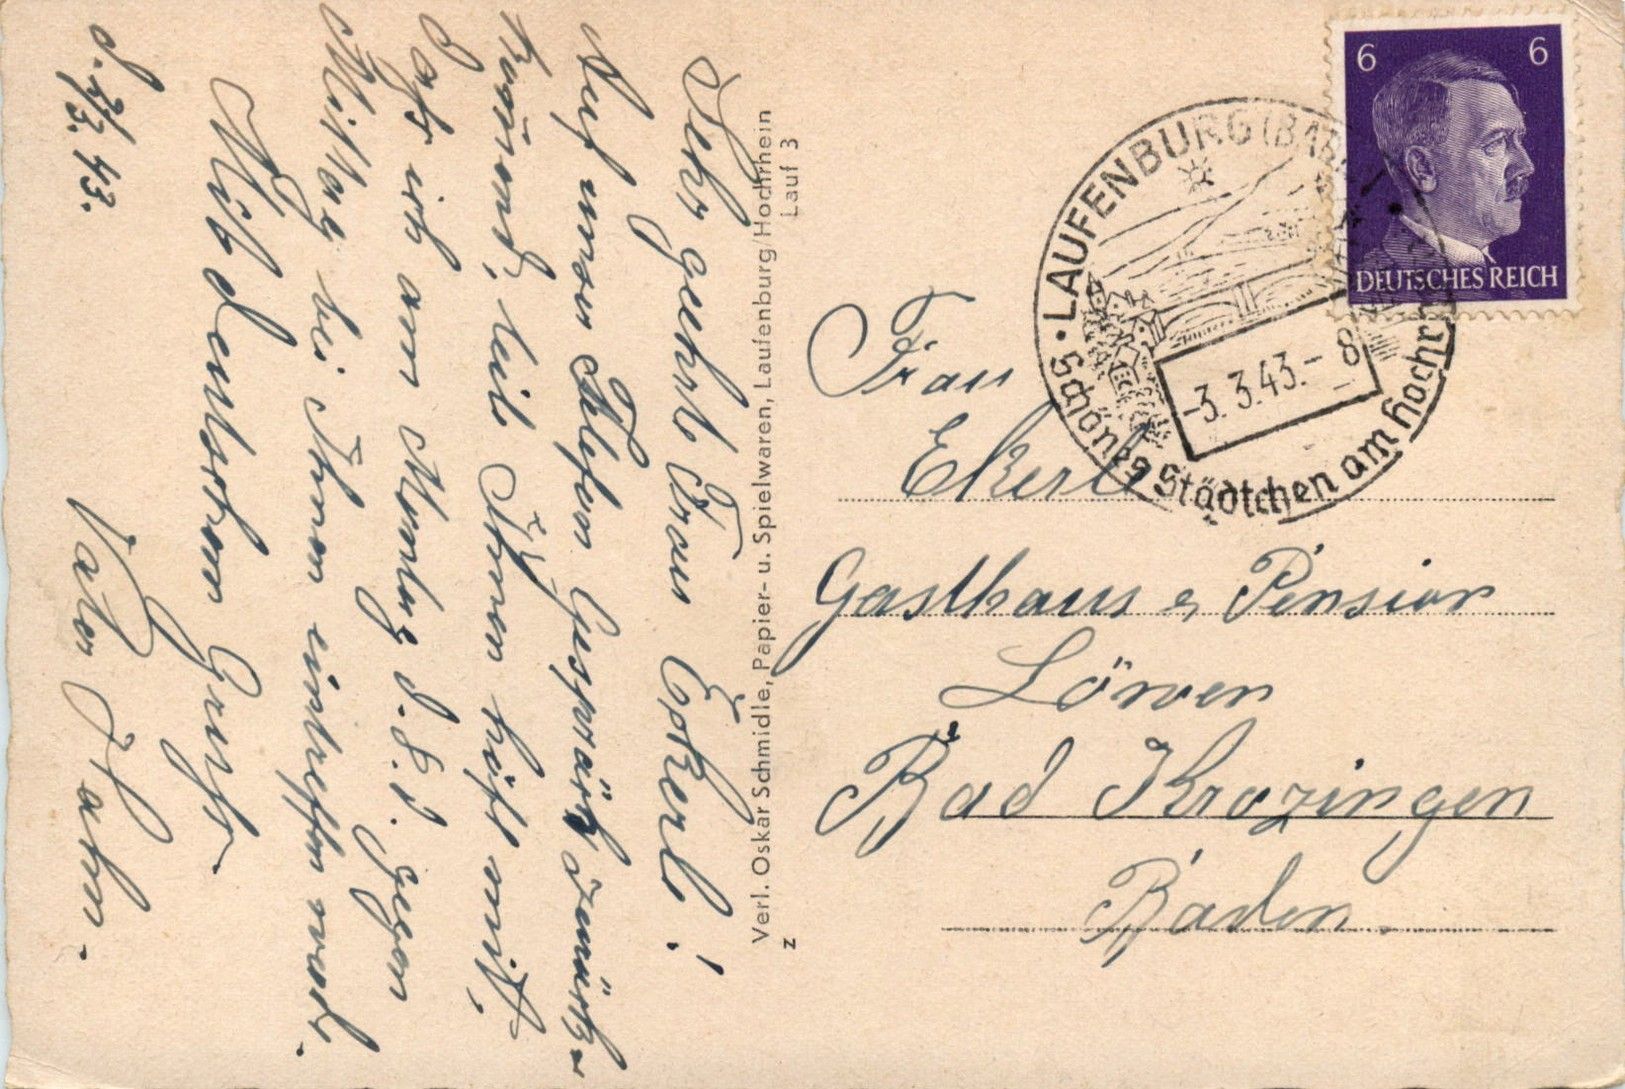 d. 2/3. 43.
Sehr geehrte Frau Ekerl!
Auf unser Telefon Gespräch zurück-
kommend, teile Ihnen höfl. mit,
daß ich am Montag d. 8. d. gegen
Mittag bei Ihnen eintreffen werde.
Mit deutschem Gruß
Vater Jahn.
Verl. Oskar Schmidle, Papier- u. Spielwaren, Laufenburg/Hochrhein
z Lauf 3
6 6
DEUTSCHES REICH
LAUFENBURG (BADEN)
-3.3.43.-8
Schönes Städtchen am Hochrhein
Frau
Ekerl
Gasthaus & Pension
Löwen
Bad Krozingen
Baden.